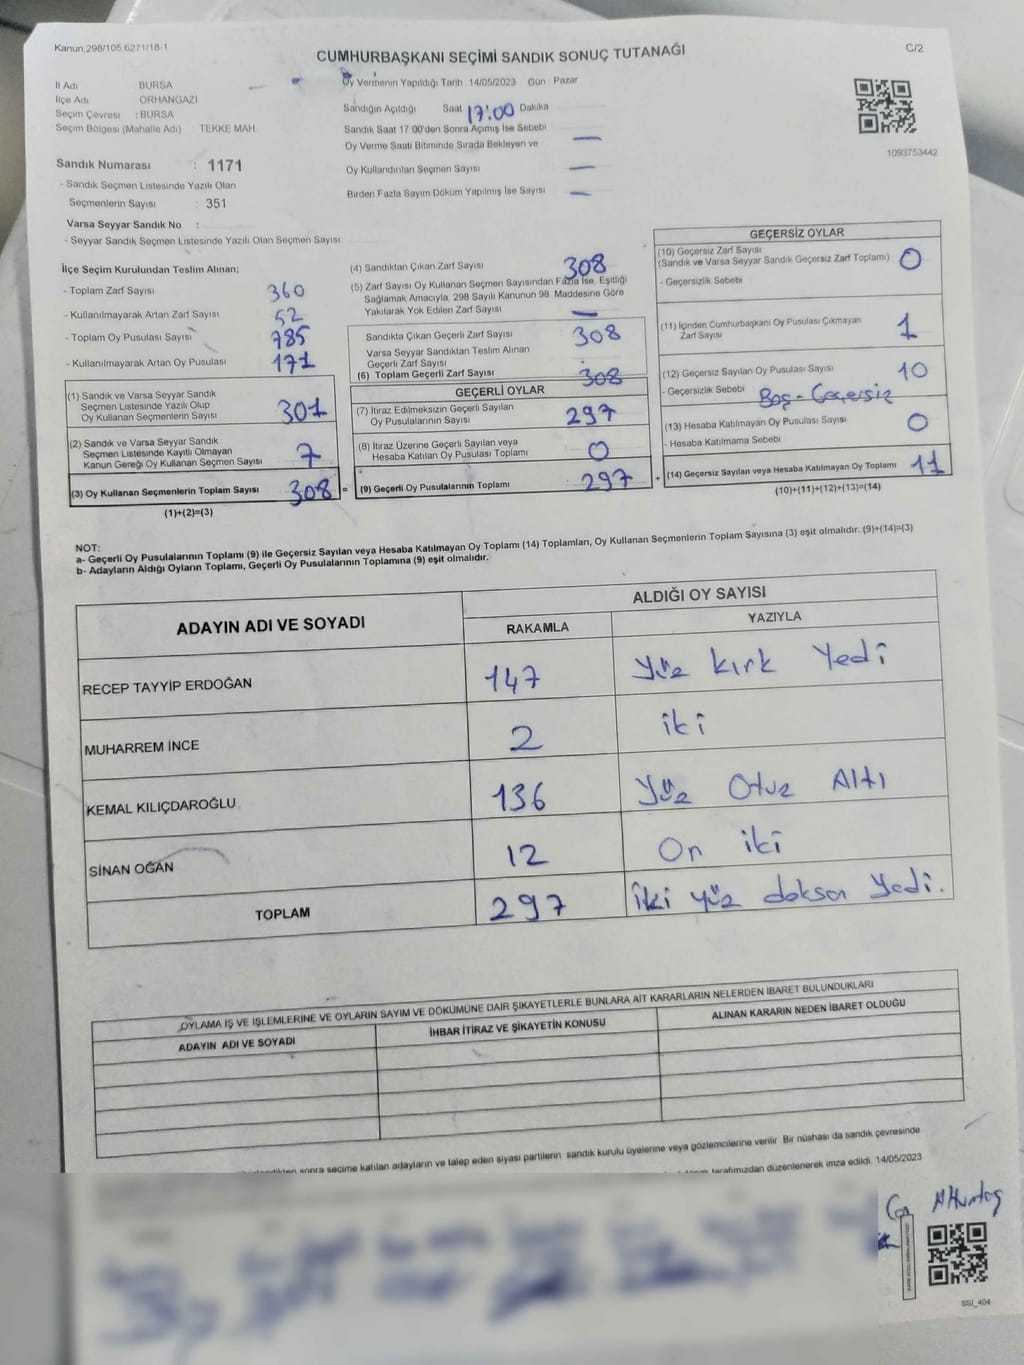 Kanun;298/105,6271/18-1
CUMHURBAŞKANI SEÇİMİ SANDIK SONUÇ TUTANAĞI
C/2
İl Adı BURSA
İlçe Adı ORHANGAZİ
Seçim Çevresi : BURSA
Seçim Bölgesi (Mahalle Adı) TEKKE MAH.
Oy Vermenin Yapıldığı Tarih 14/05/2023 Gün Pazar
Sandığın Açıldığı Saat 17:00 Dakika
Sandık Saat 17 00'den Sonra Açımış İse Sebebi
Oy Verme Saati Bitiminde Sırada Bekleyen ve
Oy Kullandırılan Seçmen Sayısı
Birden Fazla Sayım Döküm Yapılmış İse Sayısı
1093753442
Sandık Numarası : 1171
- Sandık Seçmen Listesinde Yazılı Olan
Seçmenlerin Sayısı : 351
Varsa Seyyar Sandık No :
- Seyyar Sandık Seçmen Listesinde Yazılı Olan Seçmen Sayısı
İlçe Seçim Kurulundan Teslim Alınan;
- Toplam Zarf Sayısı 360
- Kullanılmayarak Artan Zarf Sayısı 52
- Toplam Oy Pusulası Sayısı 785
- Kullanılmayarak Artan Oy Pusulası 171
(1) Sandık ve Varsa Seyyar Sandık
Seçmen Listesinde Yazılı Olup
Oy Kullanan Seçmenlerin Sayısı 301
(2) Sandık ve Varsa Seyyar Sandık
Seçmen Listesinde Kayıtlı Olmayan
Kanun Gereği Oy Kullanan Seçmen Sayısı 7
(3) Oy Kullanan Seçmenlerin Toplam Sayısı 308 =
(1)+(2)=(3)
(4) Sandıktan Çıkan Zarf Sayısı 308
(5) Zarf Sayısı Oy Kullanan Seçmen Sayısından Fazla İse, Eşitliği
Sağlamak Amacıyla, 298 Sayılı Kanunun 98. Maddesine Göre
Yakılarak Yok Edilen Zarf Sayısı
Sandıkta Çıkan Geçerli Zarf Sayısı 308
Varsa Seyyar Sandıktan Teslim Alınan
Geçerli Zarf Sayısı
(6) Toplam Geçerli Zarf Sayısı 308
GEÇERLİ OYLAR
(7) İtiraz Edilmeksizin Geçerli Sayılan
Oy Pusulasının Sayısı 297
(8) İtiraz Üzerine Geçerli Sayılan veya
Hesaba Katılan Oy Pusulası Toplamı 0
(9) Geçerli Oy Pusulalarının Toplamı 297 +
GEÇERSİZ OYLAR
(10) Geçersiz Zarf Sayısı
(Sandık ve Varsa Seyyar Sandık Geçersiz Zarf Toplamı) 0
- Geçersizlik Sebebi
(11) İçinden Cumhurbaşkanı Oy Pusulası Çıkmayan
Zarf Sayısı 1
(12) Geçersiz Sayılan Oy Pusulası Sayısı 10
- Geçersizlik Sebebi Boş - Geçersiz
(13) Hesaba Katılmayan Oy Pusulası Sayısı 0
- Hesaba Katılmama Sebebi
(14) Geçersiz Sayılan veya Hesaba Katılmayan Oy Toplamı 11
(10)+(11)+(12)+(13)=(14)
NOT:
a- Geçerli Oy Pusulalarının Toplamı (9) ile Geçersiz Sayılan veya Hesaba Katılmayan Oy Toplamı (14) Toplamları, Oy Kullanan Seçmenlerin Toplam Sayısına (3) eşit olmalıdır. (9)+(14)=(3)
b- Adayların Aldığı Oyların Toplamı, Geçerli Oy Pusulalarının Toplamına (9) eşit olmalıdır.
ADAYIN ADI VE SOYADI
ALDIĞI OY SAYISI
RAKAMLA YAZIYLA
RECEP TAYYİP ERDOĞAN 147 Yüz kırk Yedi
MUHARREM İNCE 2 iki
KEMAL KILIÇDAROĞLU 136 Yüz Otuz Altı
SİNAN OĞAN 12 On iki
TOPLAM 297 iki yüz doksan Yedi.
OYLAMA İŞ VE İŞLEMLERİNE VE OYLARIN SAYIM VE DÖKÜMÜNE DAİR ŞİKAYETLERLE BUNLARA AİT KARARLARIN NELERDEN İBARET BULUNDUKLARI
ADAYIN ADI VE SOYADI İHBAR İTİRAZ VE ŞİKAYETİN KONUSU ALINAN KARARIN NEDEN İBARET OLDUĞU
sonra seçime katılan adayların ve talep eden siyasi partilerin sandık kurulu üyelerine veya gözlemcilerine verilir. Bir nüshası da sandık çevresinde
tarafımızdan düzenlenerek imza edildi. 14/05/2023
SSI_404